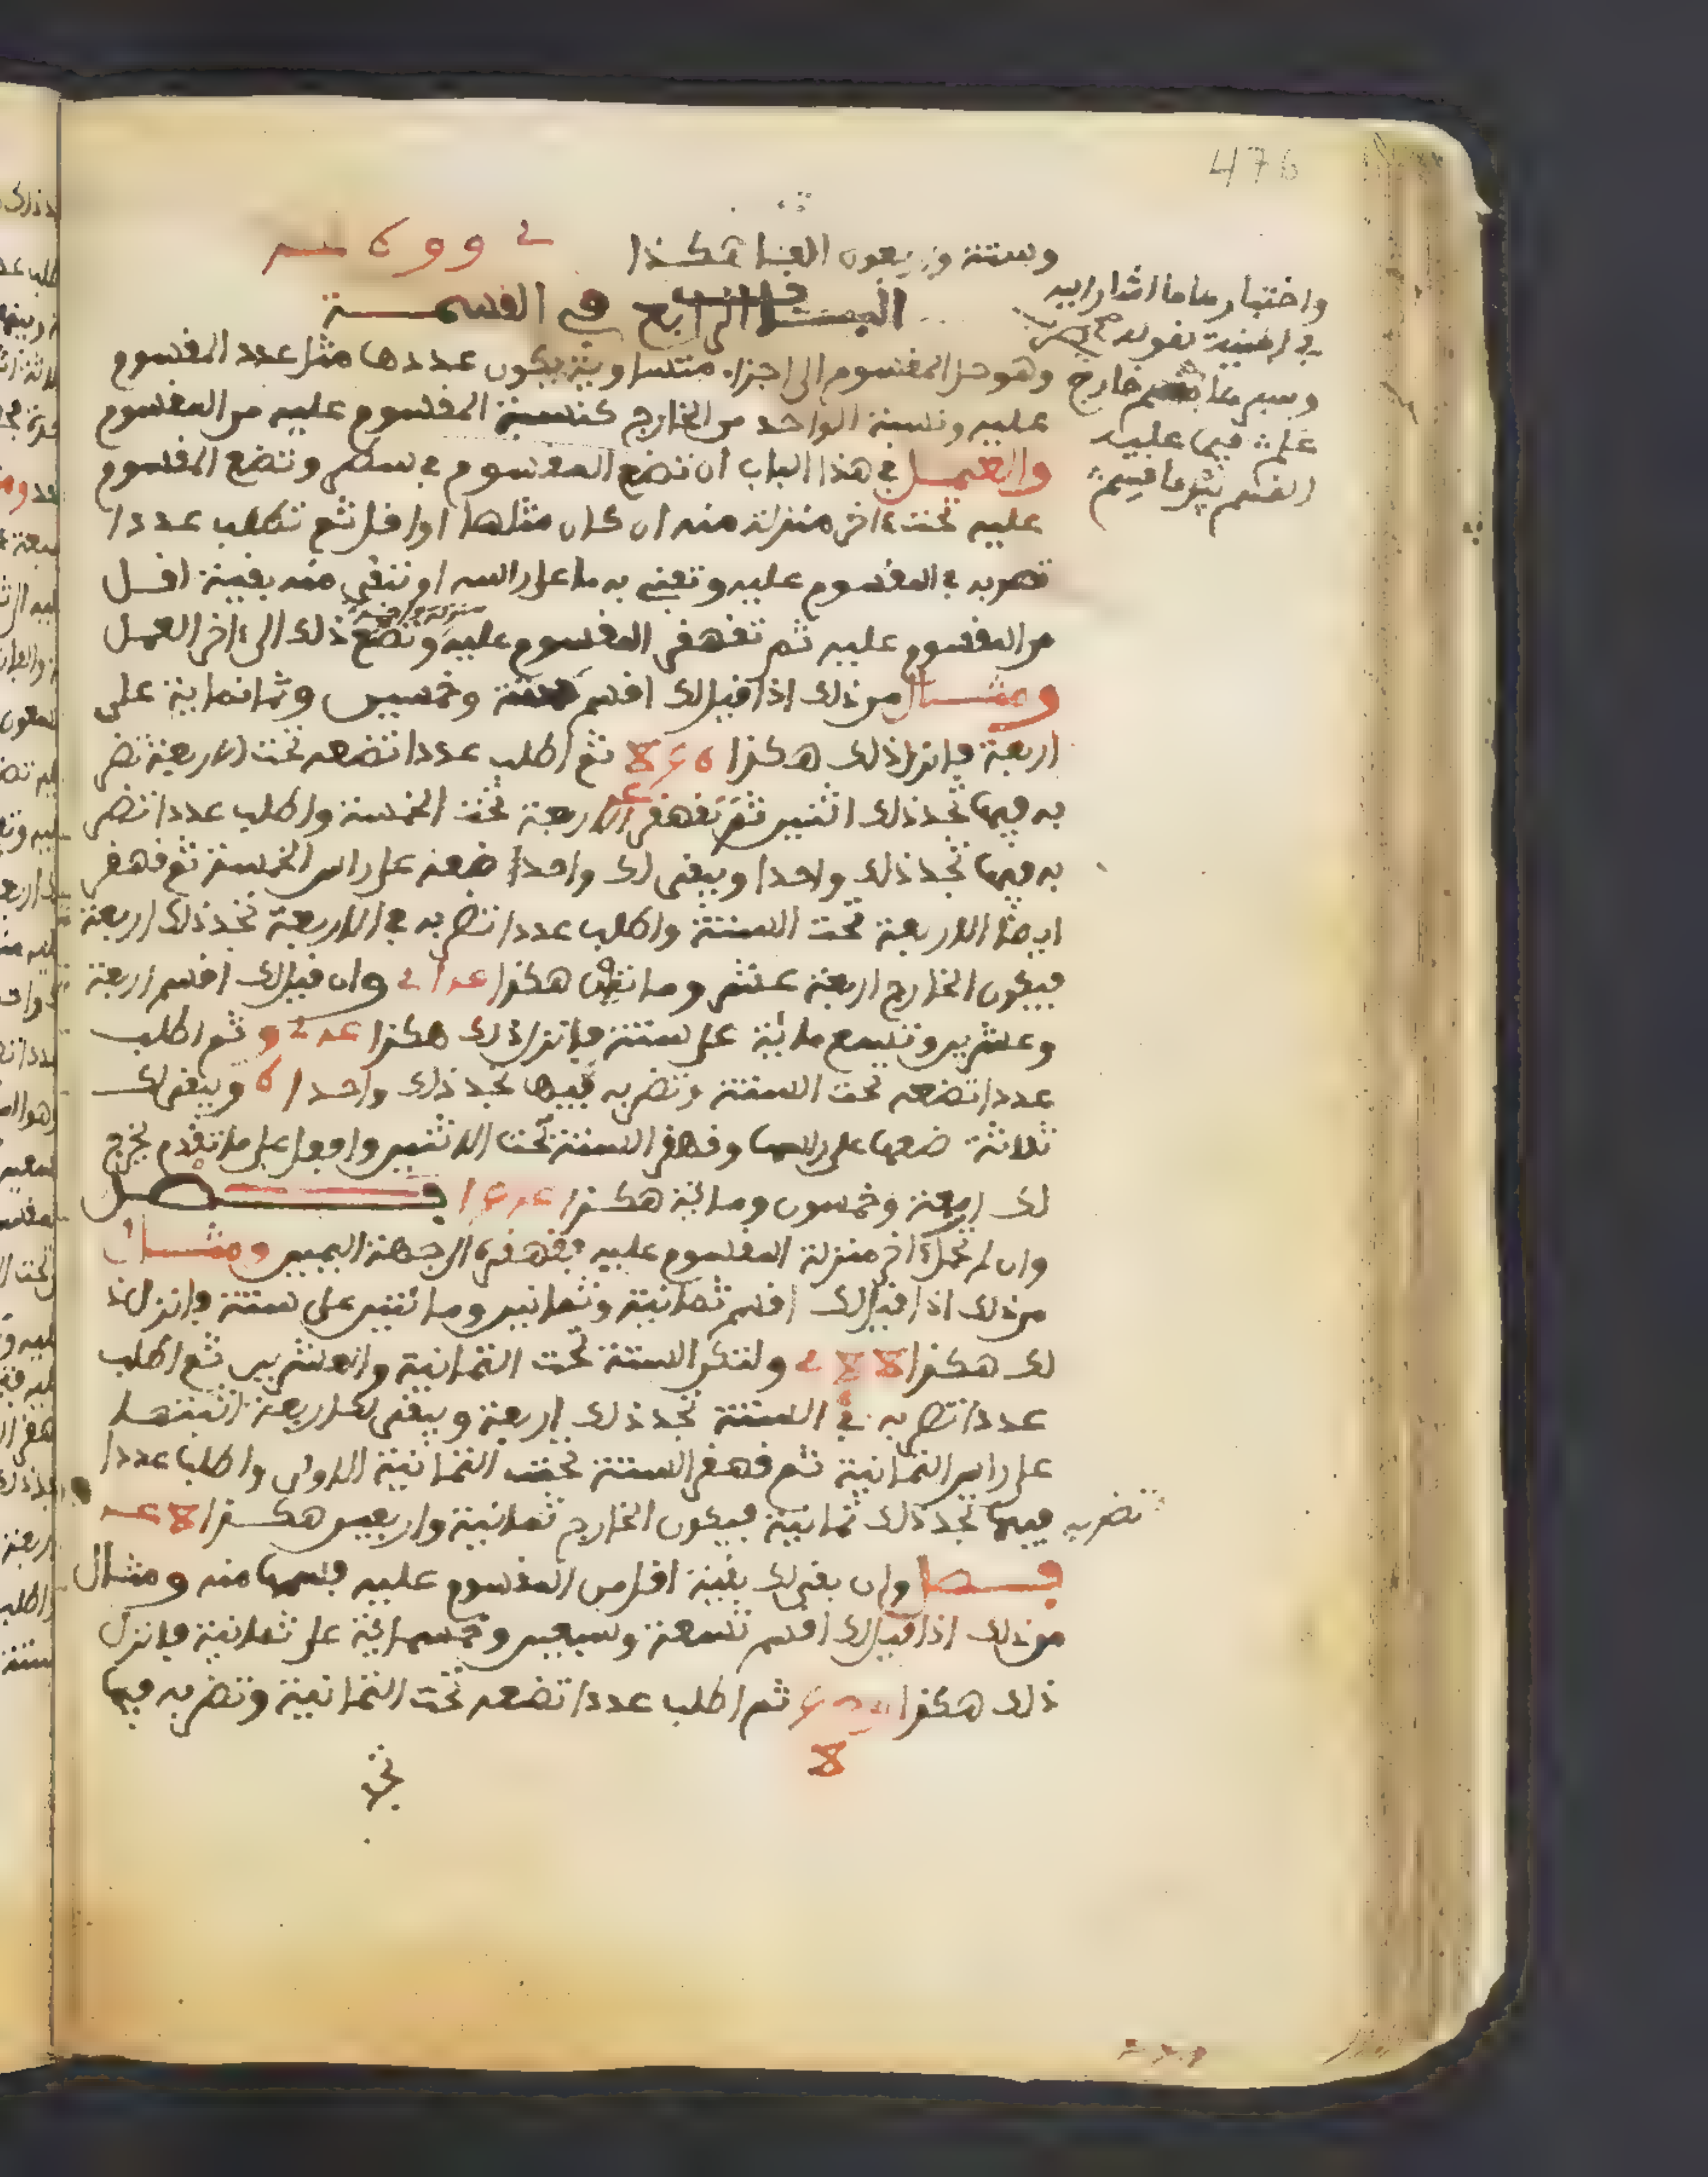 476
وستة وربعون الفا هكذا
الباب الرابع في القسمة
وهو حل المقسوم الى اجزاء متساوية يكون عددها مثل عدد المقسوم
عليه ونسبة الواحد من الخارج كنسبة المقسوم عليه من المقسوم
والعمل في هذا الباب ان تضع المقسوم في سطر وتضع المقسوم
عليه تحت ءاخر منزلة منه ان كان مثلها او اقل ثم تطلب عددا
تضربه في المقسوم عليه وتفني به ما على راسه او تبقي منه بقية اقل
من المقسوم عليه ثم تقهقر المقسوم عليه منزلة واحدة وتصنع ذلك الى ءاخر العمل
ومثال من ذلك اذا قيل لك اقسم ستة وخمسين وثمانماية على
اربعة فانزل ذلك هكذا ٨٥٦ ثم اطلب عددا تضعه تحت الاربعة تضر
٤
به فيها تجد ذلك اثنين ثم تقهقر الاربعة تحت الخمسة واطلب عددا تضر
به فيها تجد ذلك واحدا ويبقى لك واحدا ضعه على راس الخمسة ثم قهقر
ايضا الاربعة تحت الستة واطلب عددا تضربه في الاربعة تجد ذلك اربعة
فيكون الخارج اربعة عشر ومائتين هكذا ٢١٤ وان قيل لك اقسم اربعة
وعشرين وتسع مائة على ستة فانزل ذلك هكذا ٩٢٤ ثم اطلب
عددا تضعه تحت الستة وتضربه فيها تجد ذلك واحدا ٦ ويبقى لك
ثلاثة ضعها على راسها وقهقر الستة تحت الاثنين وافعل على ما تقدم يخرج
لك اربعة وخمسون ومائة هكذا ١٥٤ فصل
وان لم تحل ءاخر منزلة المقسوم عليه فقهقره الى جهة اليمين ومثال
من ذلك اذا قيل لك اقسم ثمانية وثمانين ومائتين على ستة فانزل ذ
لك هكذا ٢٨٨ ولتكن الستة تحت الثمانية والعشرين ثم اطلب
عددا تضربه في الستة تجد ذلك اربعة ويبقى لك اربعة اثبتها
على راس الثمانية ثم قهقر الستة تحت الثمانية الاولى واطلب عددا
تضربه فيها تجد ذلك ثمانية فيكون الخارج ثمانية واربعين هكذا ٤٨
فصل وان بقى لك بقية اقل من المقسوم عليه فسمها منه ومثال
من ذلك اذا قيل لك اقسم تسعة وسبعين وخمسمائة على ثمانية فانزل
ذلك هكذا ثم اطلب عددا تضعه تحت الثمانية وتضربه فيها
٨
تجد
واختبارها ما اشار اليه
في المنية بقوله
وسير ما خارج
علم فيما عليه
القسم ثم ما قسم